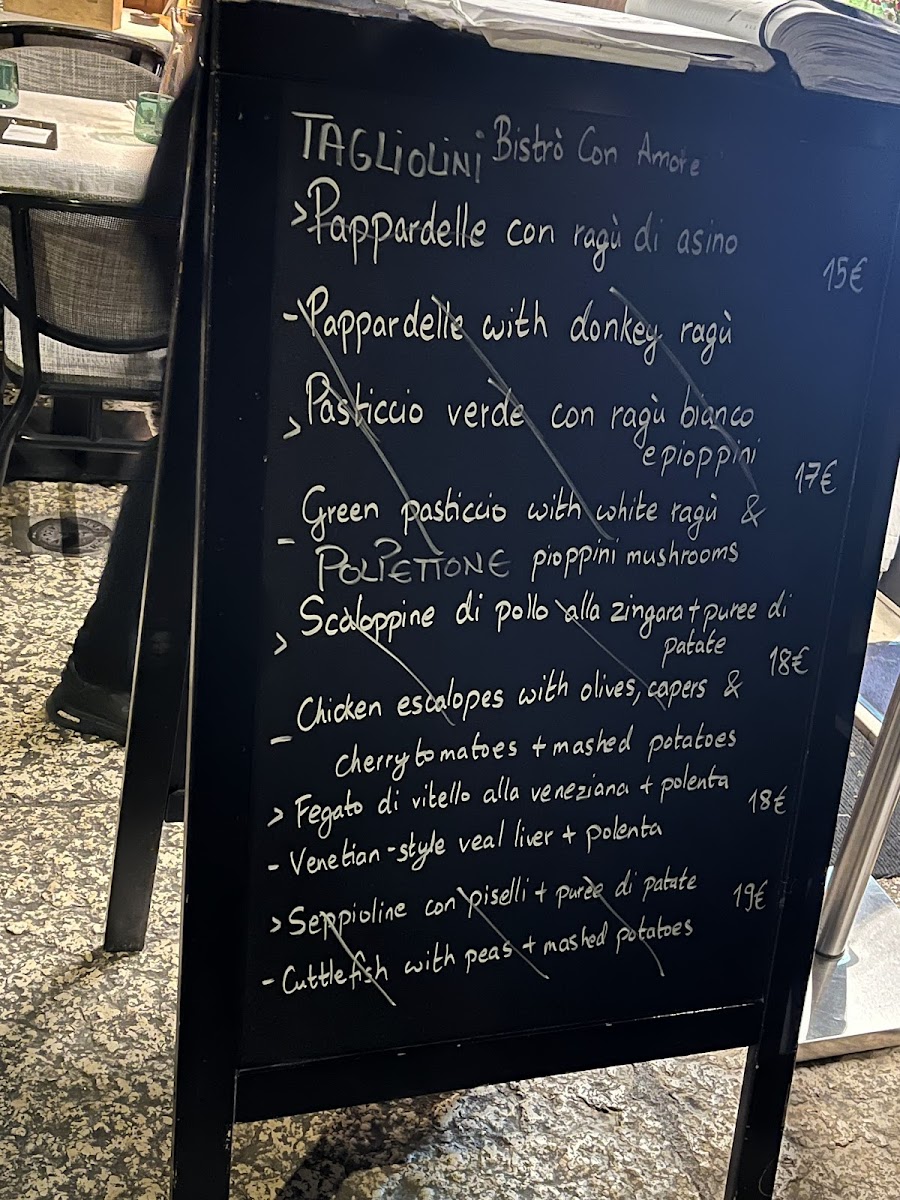 TAGLIOLINI Bistrò Con Amore
> Pappardelle con ragù di asino
15€
- Pappardelle with donkey ragù
> Pasticcio verde con ragù bianco
e pioppini
17€
- Green pasticcio with white ragù &
POLPETTONE pioppini mushrooms
> Scaloppine di pollo alla zingara + puree di
patate
18€
- Chicken escalopes with olives, capers &
cherry tomatoes + mashed potatoes
> Fegato di vitello alla veneziana + polenta
18€
- Venetian-style veal liver + polenta
> Seppioline con piselli + purèe di patate
19€
- Cuttlefish with peas + mashed potatoes